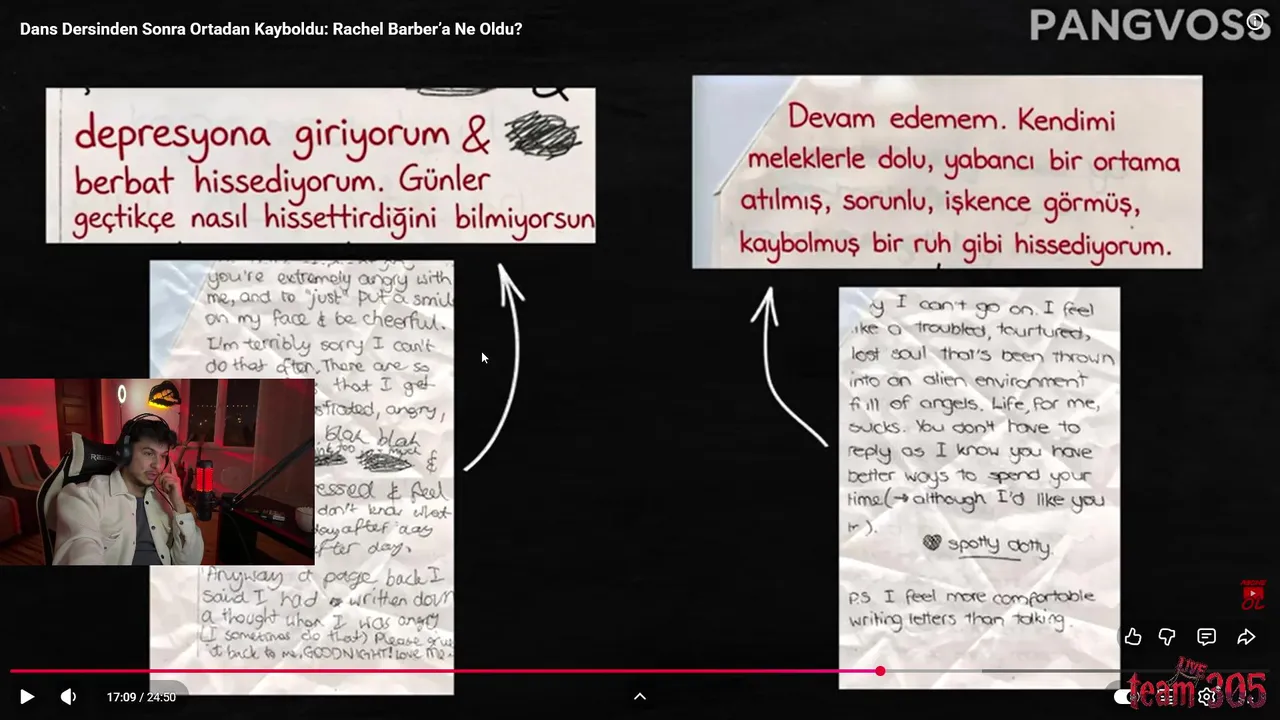 Dans Dersinden Sonra Ortadan Kayboldu: Rachel Barber'a Ne Oldu?
PANGVOSS
depresyona giriyorum &
berbat hissediyorum. Günler
geçtikçe nasıl hissettirdiğini bilmiyorsun
Devam edemem. Kendimi
meleklerle dolu, yabancı bir ortama
atılmış, sorunlu, işkence görmüş,
kaybolmuş bir ruh gibi hissediyorum.
you're extremely angry with
me, and to "just" put a smil
on my face & be cheerful.
I'm terribly sorry I can't
do that often. There are so
that I get
strated, angry,
blah blah
&
essed & feel
don't know what
day after day
fter day.
Anyway a page back I
said I had written down
a thought when I was angry
(I sometimes do that) Please give
it back to me, GOODNIGHT! love me
y I can't go on. I feel
like a troubled, tourtured,
lost soul that's been thrown
into an alien environment
full of angels. Life, for me,
sucks. You don't have to
reply as I know you have
better ways to spend your
time (→ although I'd like you
spotty dotty.
P.S I feel more comfortable
writing letters than talking.
ABONE
OL
17:09 / 24:50
LIVE
team 305